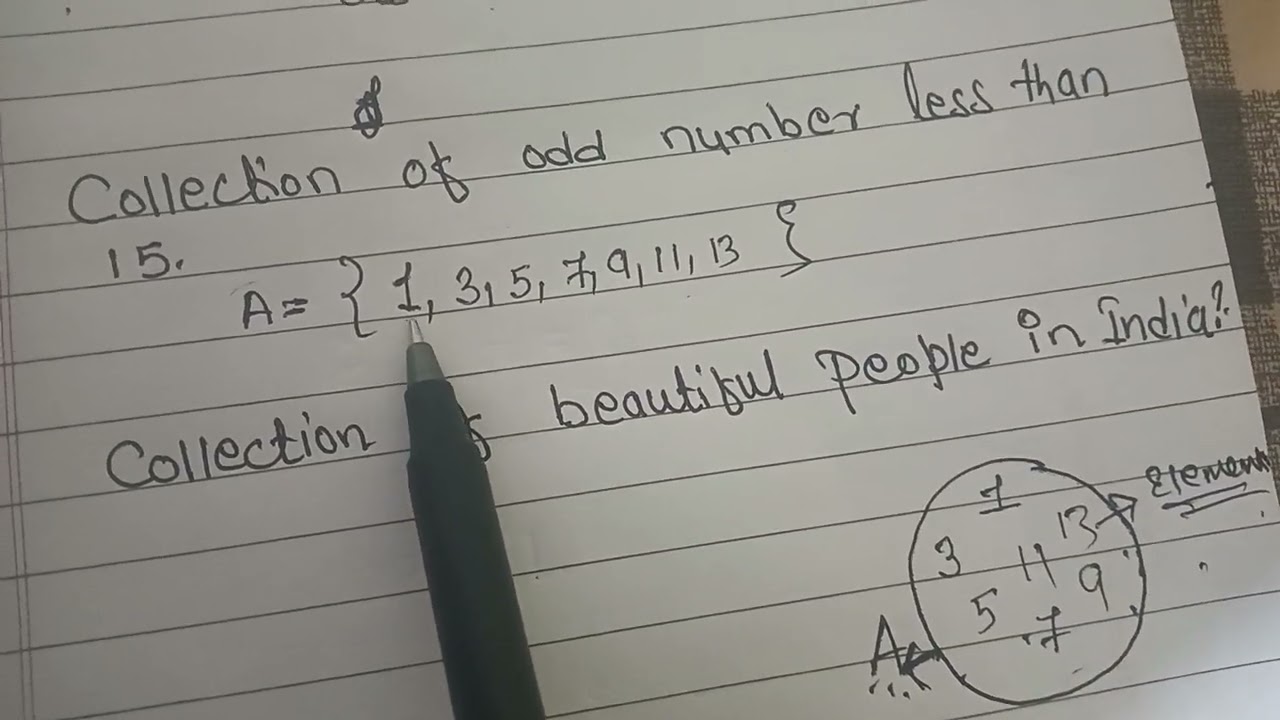 Collection of odd number less than
15.
A = { 1, 3, 5, 7, 9, 11, 13 }
Collection beautiful people in India?
Element
1
13
3 11 9
5 7
A